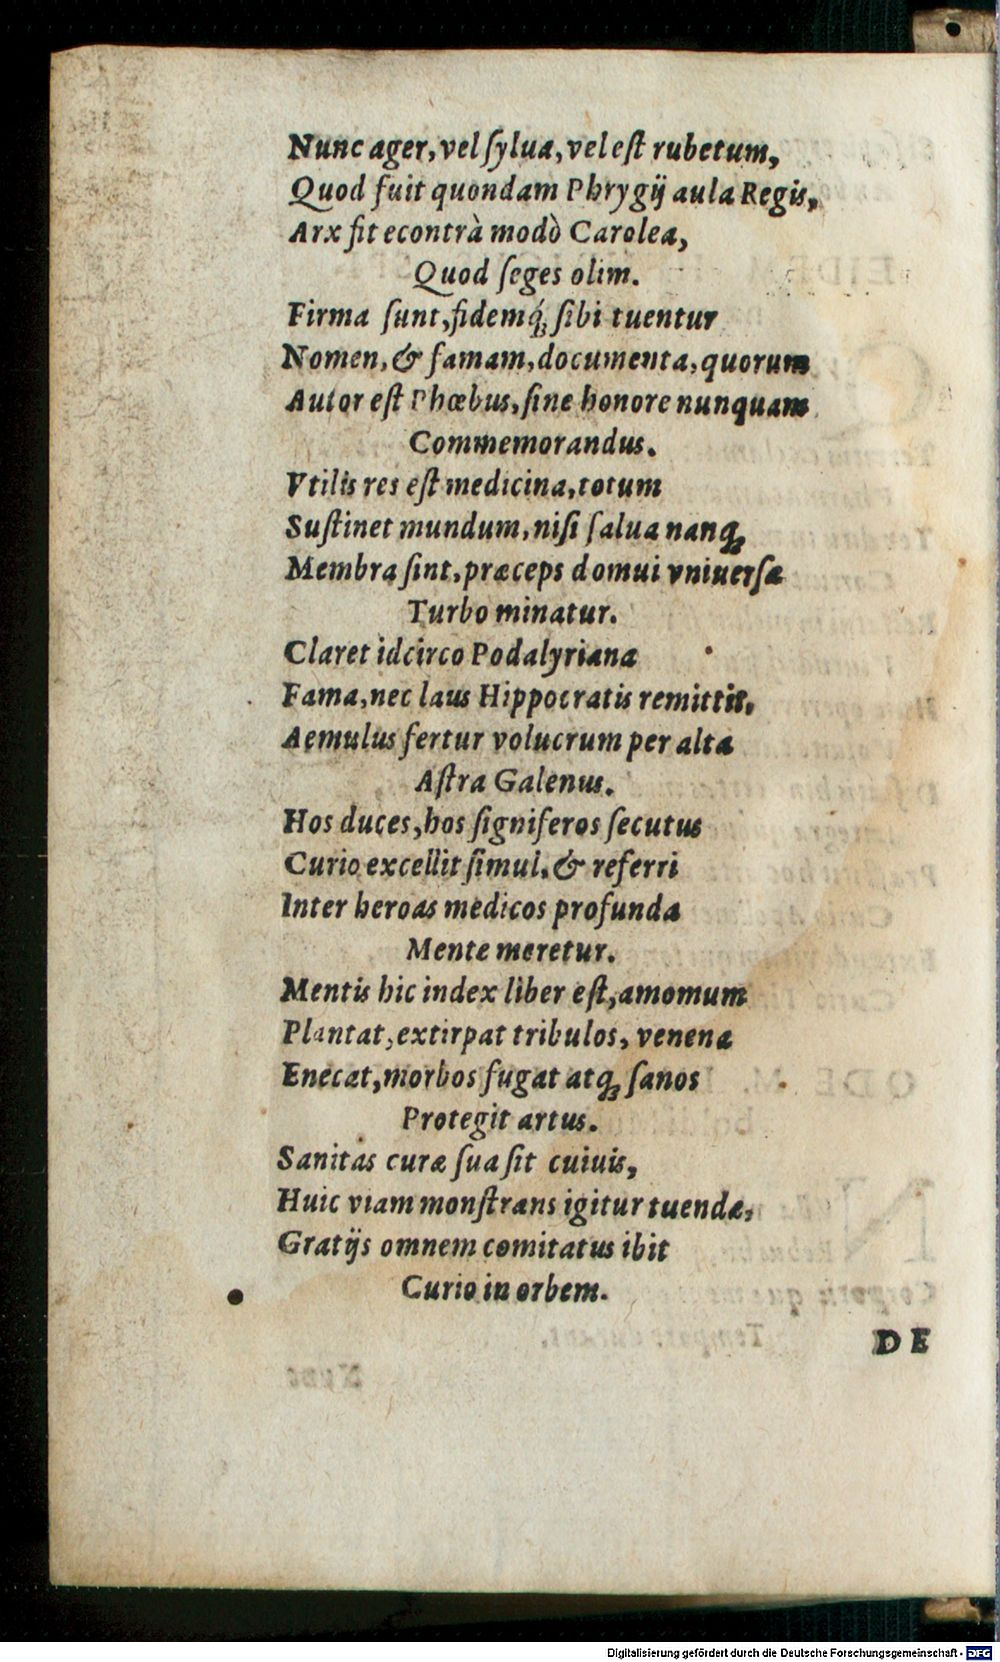 Nunc ager, vel ſylua, vel eſt rubetum,
Quod fuit quondam Phrygij aula Regis,
Arx fit econtrà modò Carolea,
Quod ſeges olim.
Firma ſunt, fidemq́ꝫ ſibi tuentur
Nomen, & famam, documenta, quorum
Autor eſt Phœbus, ſine honore nunquam
Commemorandus.
Vtilis res eſt medicina, totum
Suſtinet mundum, niſi ſalua nanqꝫ
Membra ſint, præceps domui vniuerſæ
Turbo minatur.
Claret idcirco Podalyriana
Fama, nec laus Hippocratis remittit,
Aemulus fertur volucrum per alta
Aſtra Galenus.
Hos duces, hos ſigniferos ſecutus
Curio excellit ſimul, & referri
Inter heroas medicos profunda
Mente meretur.
Mentis hic index liber eſt, amomum
Plantat, extirpat tribulos, venena
Enecat, morbos fugat atqꝫ ſanos
Protegit artus.
Sanitas curæ ſua ſit cuiuis,
Huic viam monſtrans igitur tuendæ,
Gratijs omnem comitatus ibit
Curio in orbem.
DE
Digitalisierung gefördert durch die Deutsche Forschungsgemeinschaft - DFG